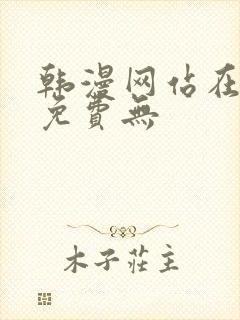 韩漫网站在
免費無
木子莊主